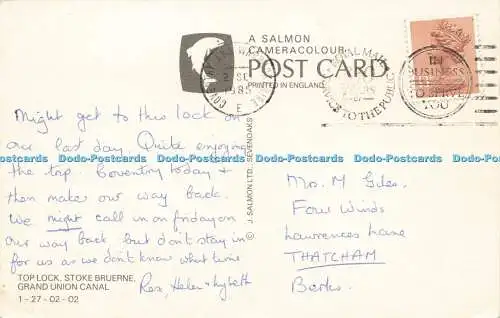 A SALMON
CAMERACOLOUR
POST CARD
PRINTED IN ENGLAND
ROYAL MAIL
SERVICE TO THE PUBLIC
IN
BUSINESS
TO SERVE
YOU
COVENTRY
2
1985
E
Might get to this lock on
our last day. Quite enjoying
Dodo-Postcards Dodo-Postcards Dodo-Postcards Dodo-Postcards Dodo-Postcards
the trip. Coventry today &
then make our way back.
We might call in on friday on
our way back but don't stay in
for us as we don't know what time
Rex, Helen &
© J. SALMON LTD., SEVENOAKS
Mrs. M Giles.
Four Winds
Lawrences Lane
THATCHAM
Berks.
TOP LOCK, STOKE BRUERNE,
GRAND UNION CANAL
1-27-02-02